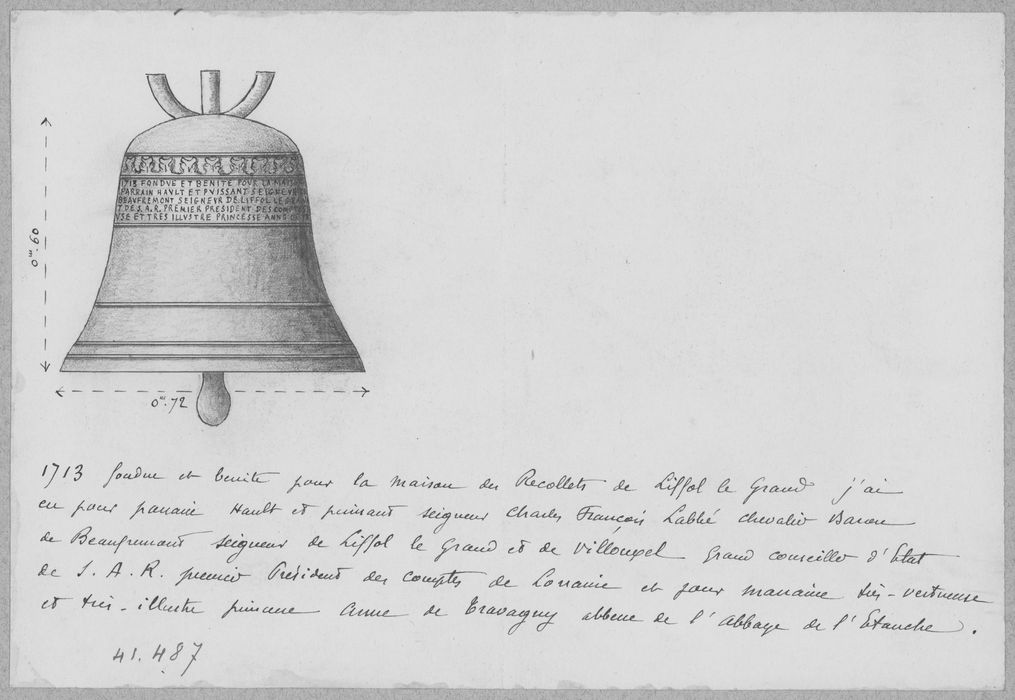 1713 FONDVE ET BENITE POVR LA MAISO
PARRAIN HAVLT ET PVISSANT SEIGNEVR
BEAVFREMONT SEIGNEVR DE LIFFOL LE GRAN
T DE S. A. R. PREMIER PRESIDENT DES COMPT
VSE ET TRES ILLVSTRE PRINCESSE ANNE
0m.60
0m.72
1713 fondue et benite pour la maison des Recollets de Liffol le Grand j'ai
eu pour parrain Hault et puissant seigneur Charles François Labbé chevalier Baron
de Beaufremont seigneur de Liffol le Grand et de Villouxel grand conseiller d'Etat
de S. A. R. premier Président des comptes de Lorraine et pour marraine très-vertueuse
et très-illustre Anne de abbesse de l'Abbaye de l'Etanche.
41.487